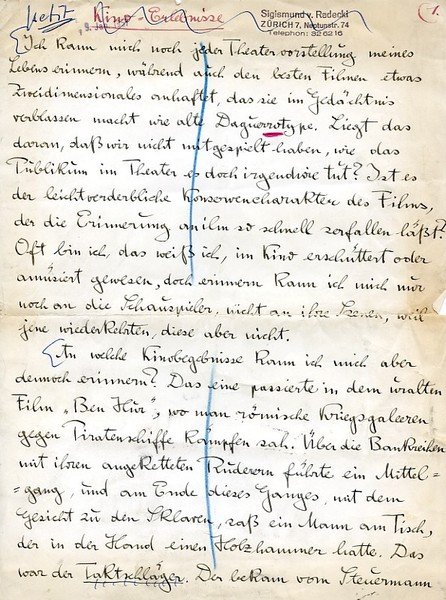 petit Kino-Erlebnisse
Sigismund v. Radecki
ZÜRICH 7, Neptunstr. 74
Telephon: 32 62 16
1.
Ich kann mich noch jeder Theatervorstellung meines
Lebens erinnern, während auch den besten Filmen etwas
Zweidimensionales anhaftet, das sie im Gedächtnis
verblassen macht wie alte Daguerrotype. Liegt das
daran, daß wir nicht mitgespielt haben, wie das
Publikum im Theater es doch irgendwie tut? Ist es
der leichtverderbliche Konservencharakter des Films,
der die Erinnerung an ihn so schnell zerfallen läßt?
Oft bin ich, das weiß ich, im Kino erschüttert oder
amüsiert gewesen, doch erinnern kann ich mich nur
noch an die Schauspieler, nicht an ihre Szenen, weil
jene wiederkehrten, diese aber nicht.
An welche Kinobegebnisse kann ich mich aber
dennoch erinnern? Das eine passierte in dem uralten
Film „Ben Hur", wo man römische Kriegsgaleeren
gegen Piratenschiffe kämpfen sah. Über die Bankreihen
mit ihren angeketteten Ruderern führte ein Mittel=
=gang, und am Ende dieses Ganges, mit dem
Gesicht zu den Sklaven, saß ein Mann am Tisch,
der in der Hand einen Holzhammer hatte. Das
war der Taktschläger. Der bekam vom Steuermann